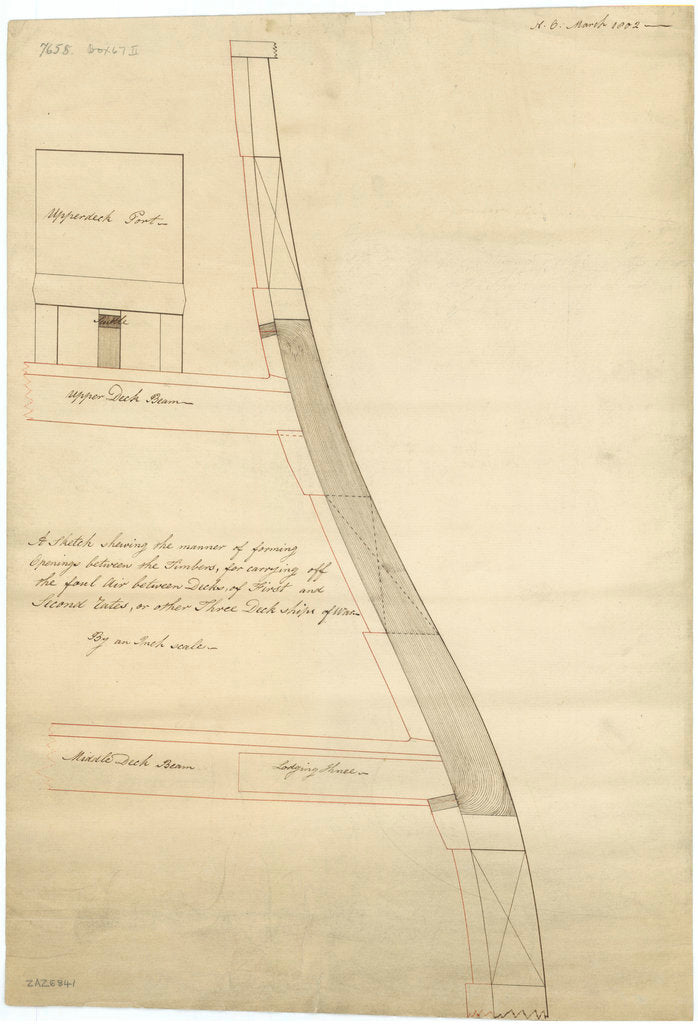 7658. Box 67 II
N. O. March 1802
Upperdeck Port
Scuttle
Upper Deck Beam
A Sketch shewing the manner of forming
Openings between the Timbers, for carrying off
the foul Air between Decks, of First and
Second Rates, or other Three Deck ships of War
By an Inch scale
Middle Deck Beam
Lodging Knee
ZAZE841